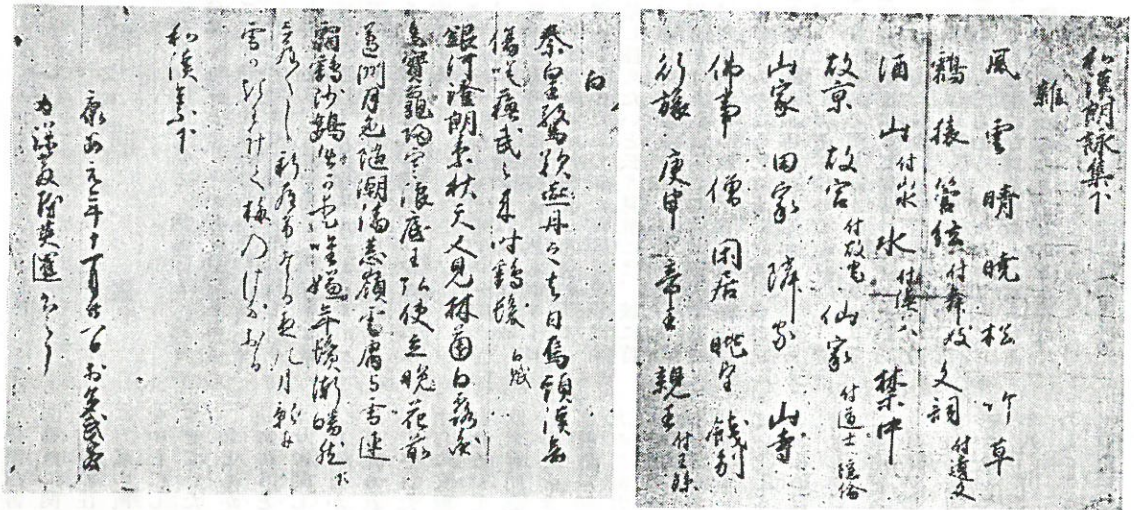 和漢朗詠集下
雑
風 雲 晴 暁 松 竹 草
鶴 猿 管絃付舞妓 文詞付遺文
酒 山付水 水付漁父 禁中
故京 故宮付故宅 仙家付道士隠倫
山家 田家 隣家 山寺
佛事 僧 閑居 眺望 餞別
行旅 庚申 帝王 親王付王孫
白
秦皇驚歎燕丹之去日烏頭漢帝
傷嗟蘇武之来时鶴髪 白賦
銀河澄朗素秋天又見林薗白露圓
毛寶龜歸寒浪底王弘使立晩花前
蘆洲月色随潮満葱嶺雲膚与雪連
霜鶴沙鷗皆可愛唯嫌年鬢漸皤然
雪かきわけて梅のはなおる
和漢
康安元年十一月